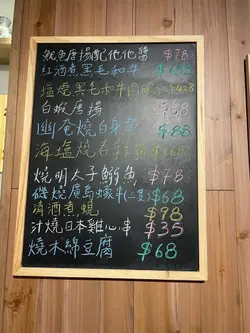 魷魚唐揚配他他醬 $78
紅酒煮黑毛和牛
塩燒黑毛和牛肉
白蝦唐揚 $58
幽奄燒白身魚 $88
海塩燒吞拿 $68
燒明太子鰯魚 $78
磯燒廣島蠔串(二隻) $68
清酒煮蜆 $98
汁燒日本雞心串 $35
燒木綿豆腐 $68